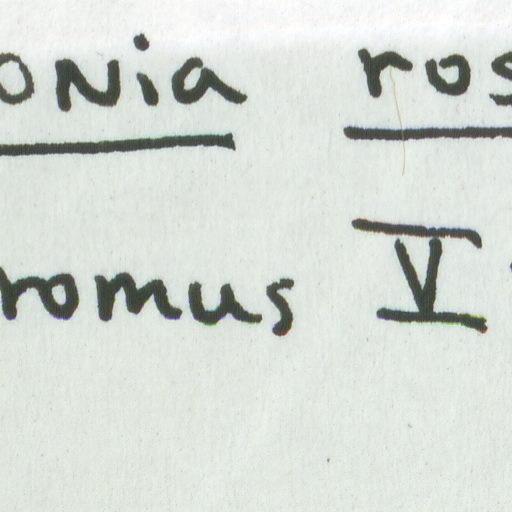 onia ros
romus V